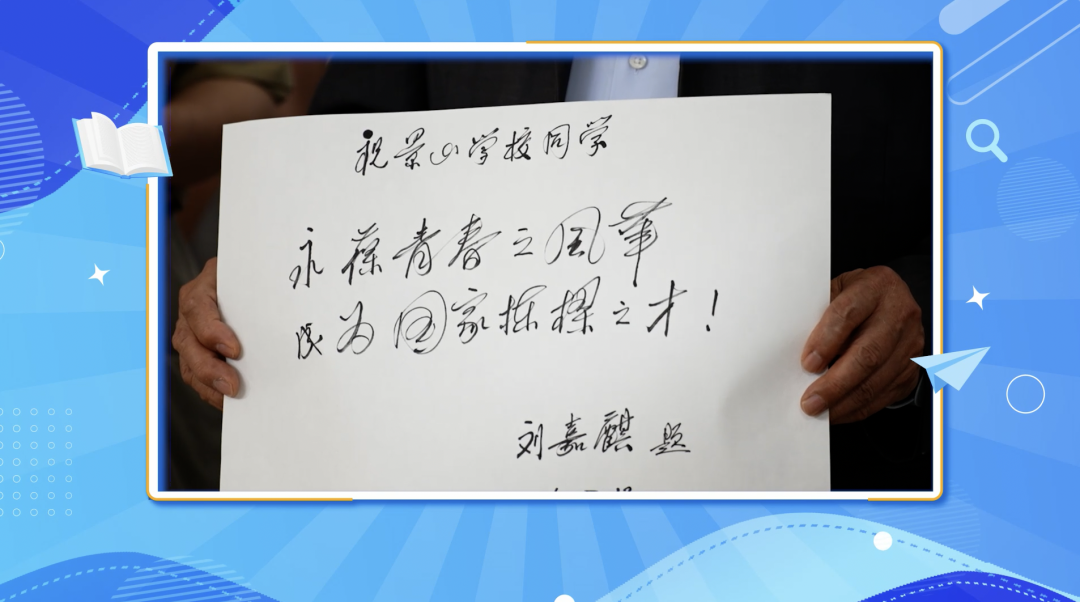 祝景山学校同学
永葆青春之风华
成为国家栋梁之才！
刘嘉麒 题